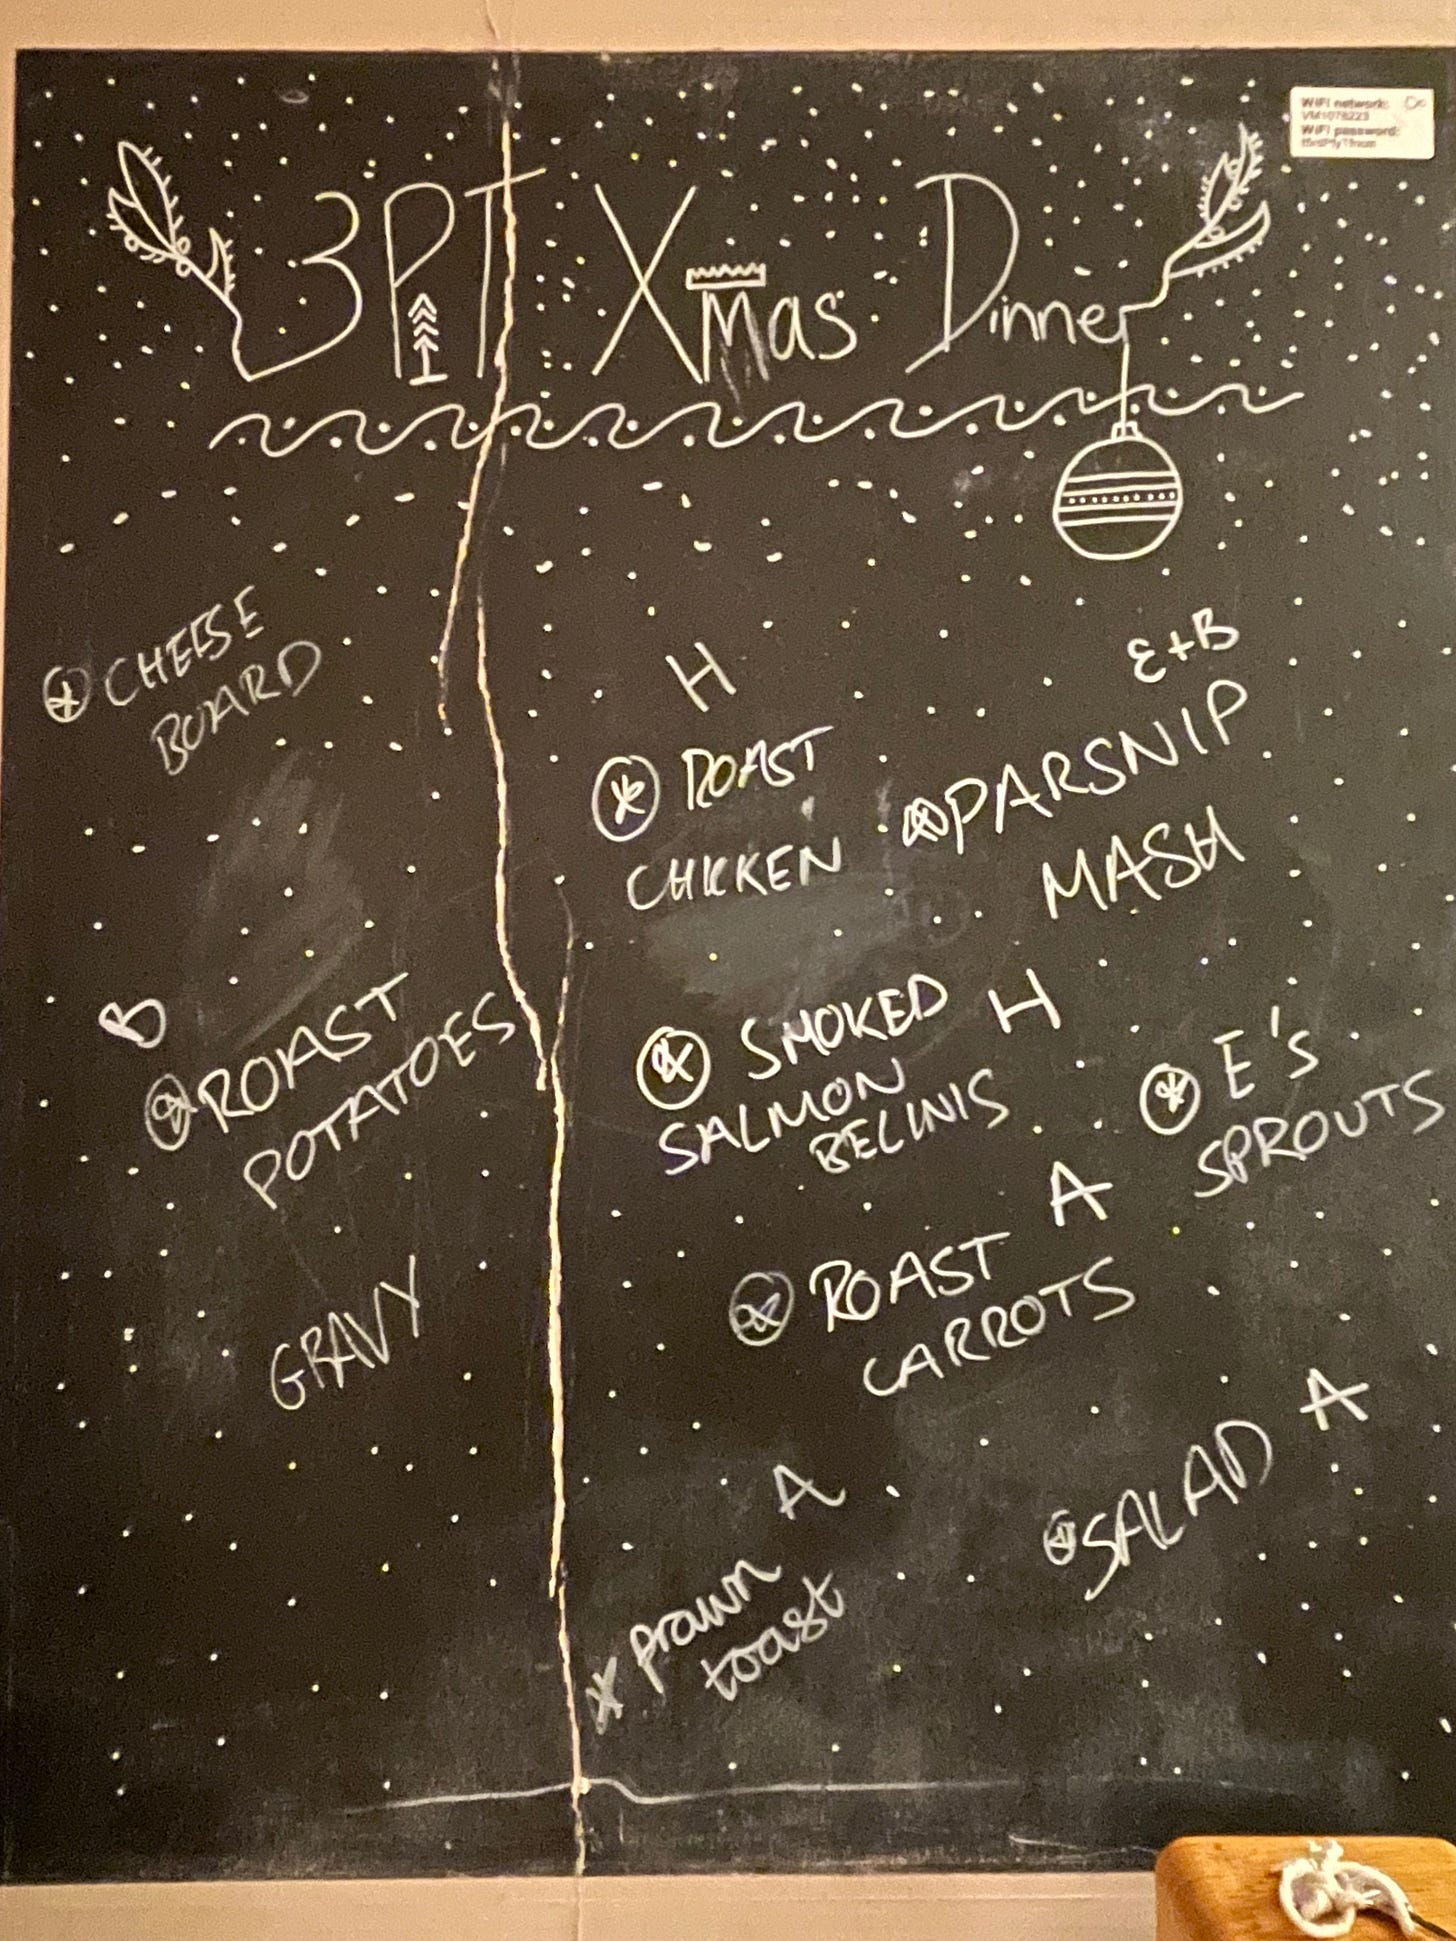 WiFi network:
VM1078223
WiFi password:
3PT Xmas Dinner
CHEESE
BOARD
H
ROAST
CHICKEN
E+B
PARSNIP
MASH
B
ROAST
POTATOES
SMOKED H
SALMON
BELINIS
E's
SPROUTS
GRAVY
A
ROAST
CARROTS
SALAD A
A
prawn
toast